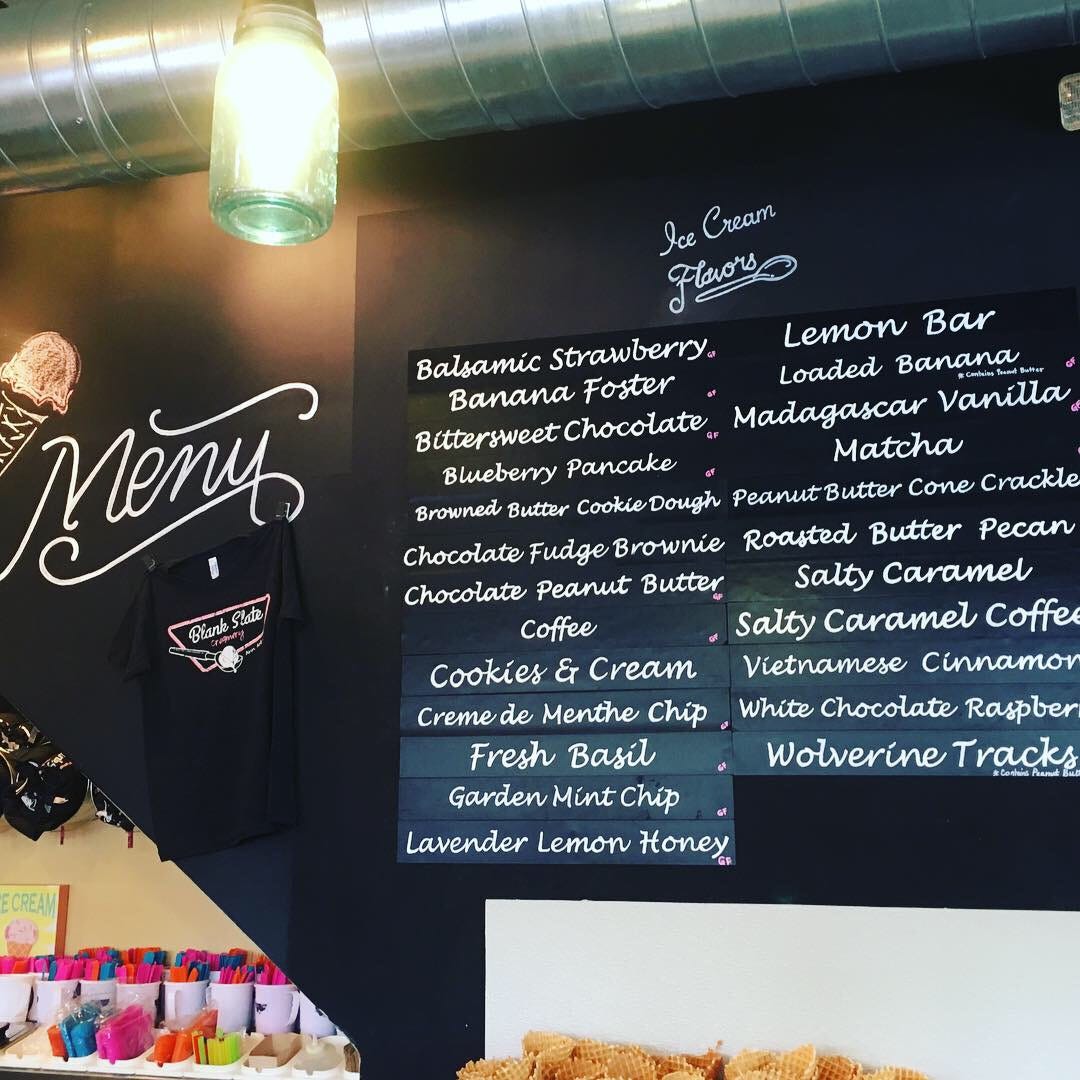 Ice Cream
Flavors
Menu
Balsamic Strawberry GF
Banana Foster GF
Bittersweet Chocolate GF
Blueberry Pancake GF
Browned Butter Cookie Dough
Chocolate Fudge Brownie
Chocolate Peanut Butter GF
Coffee GF
Cookies & Cream
Creme de Menthe Chip GF
Fresh Basil GF
Garden Mint Chip GF
Lavender Lemon Honey GF
Lemon Bar
Loaded Banana GF
* Contains Peanut Butter
Madagascar Vanilla
Matcha
Peanut Butter Cone Crackle
Roasted Butter Pecan
Salty Caramel
Salty Caramel Coffee
Vietnamese Cinnamon
White Chocolate Raspber
Wolverine Tracks
* Contains Peanut But
Blank Slate
Creamery
CE CREAM